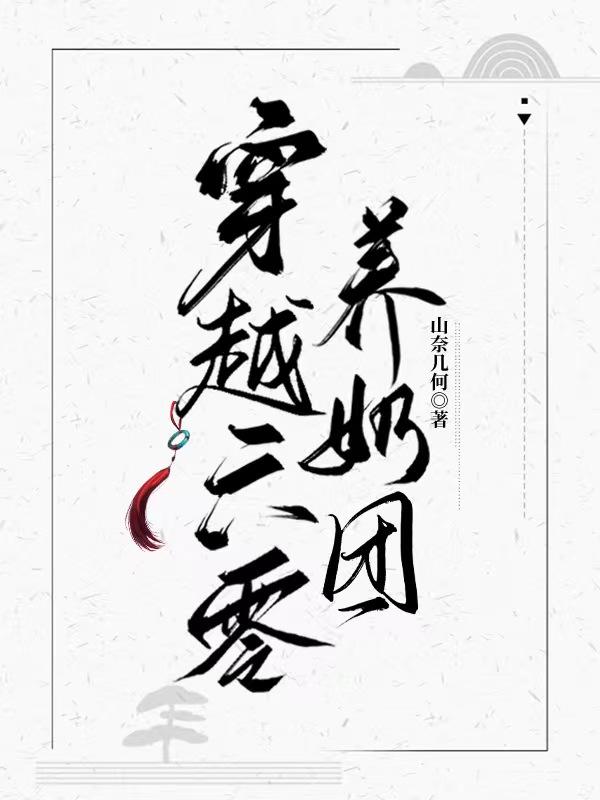 穿越六零
养奶团
山奈几何◎著